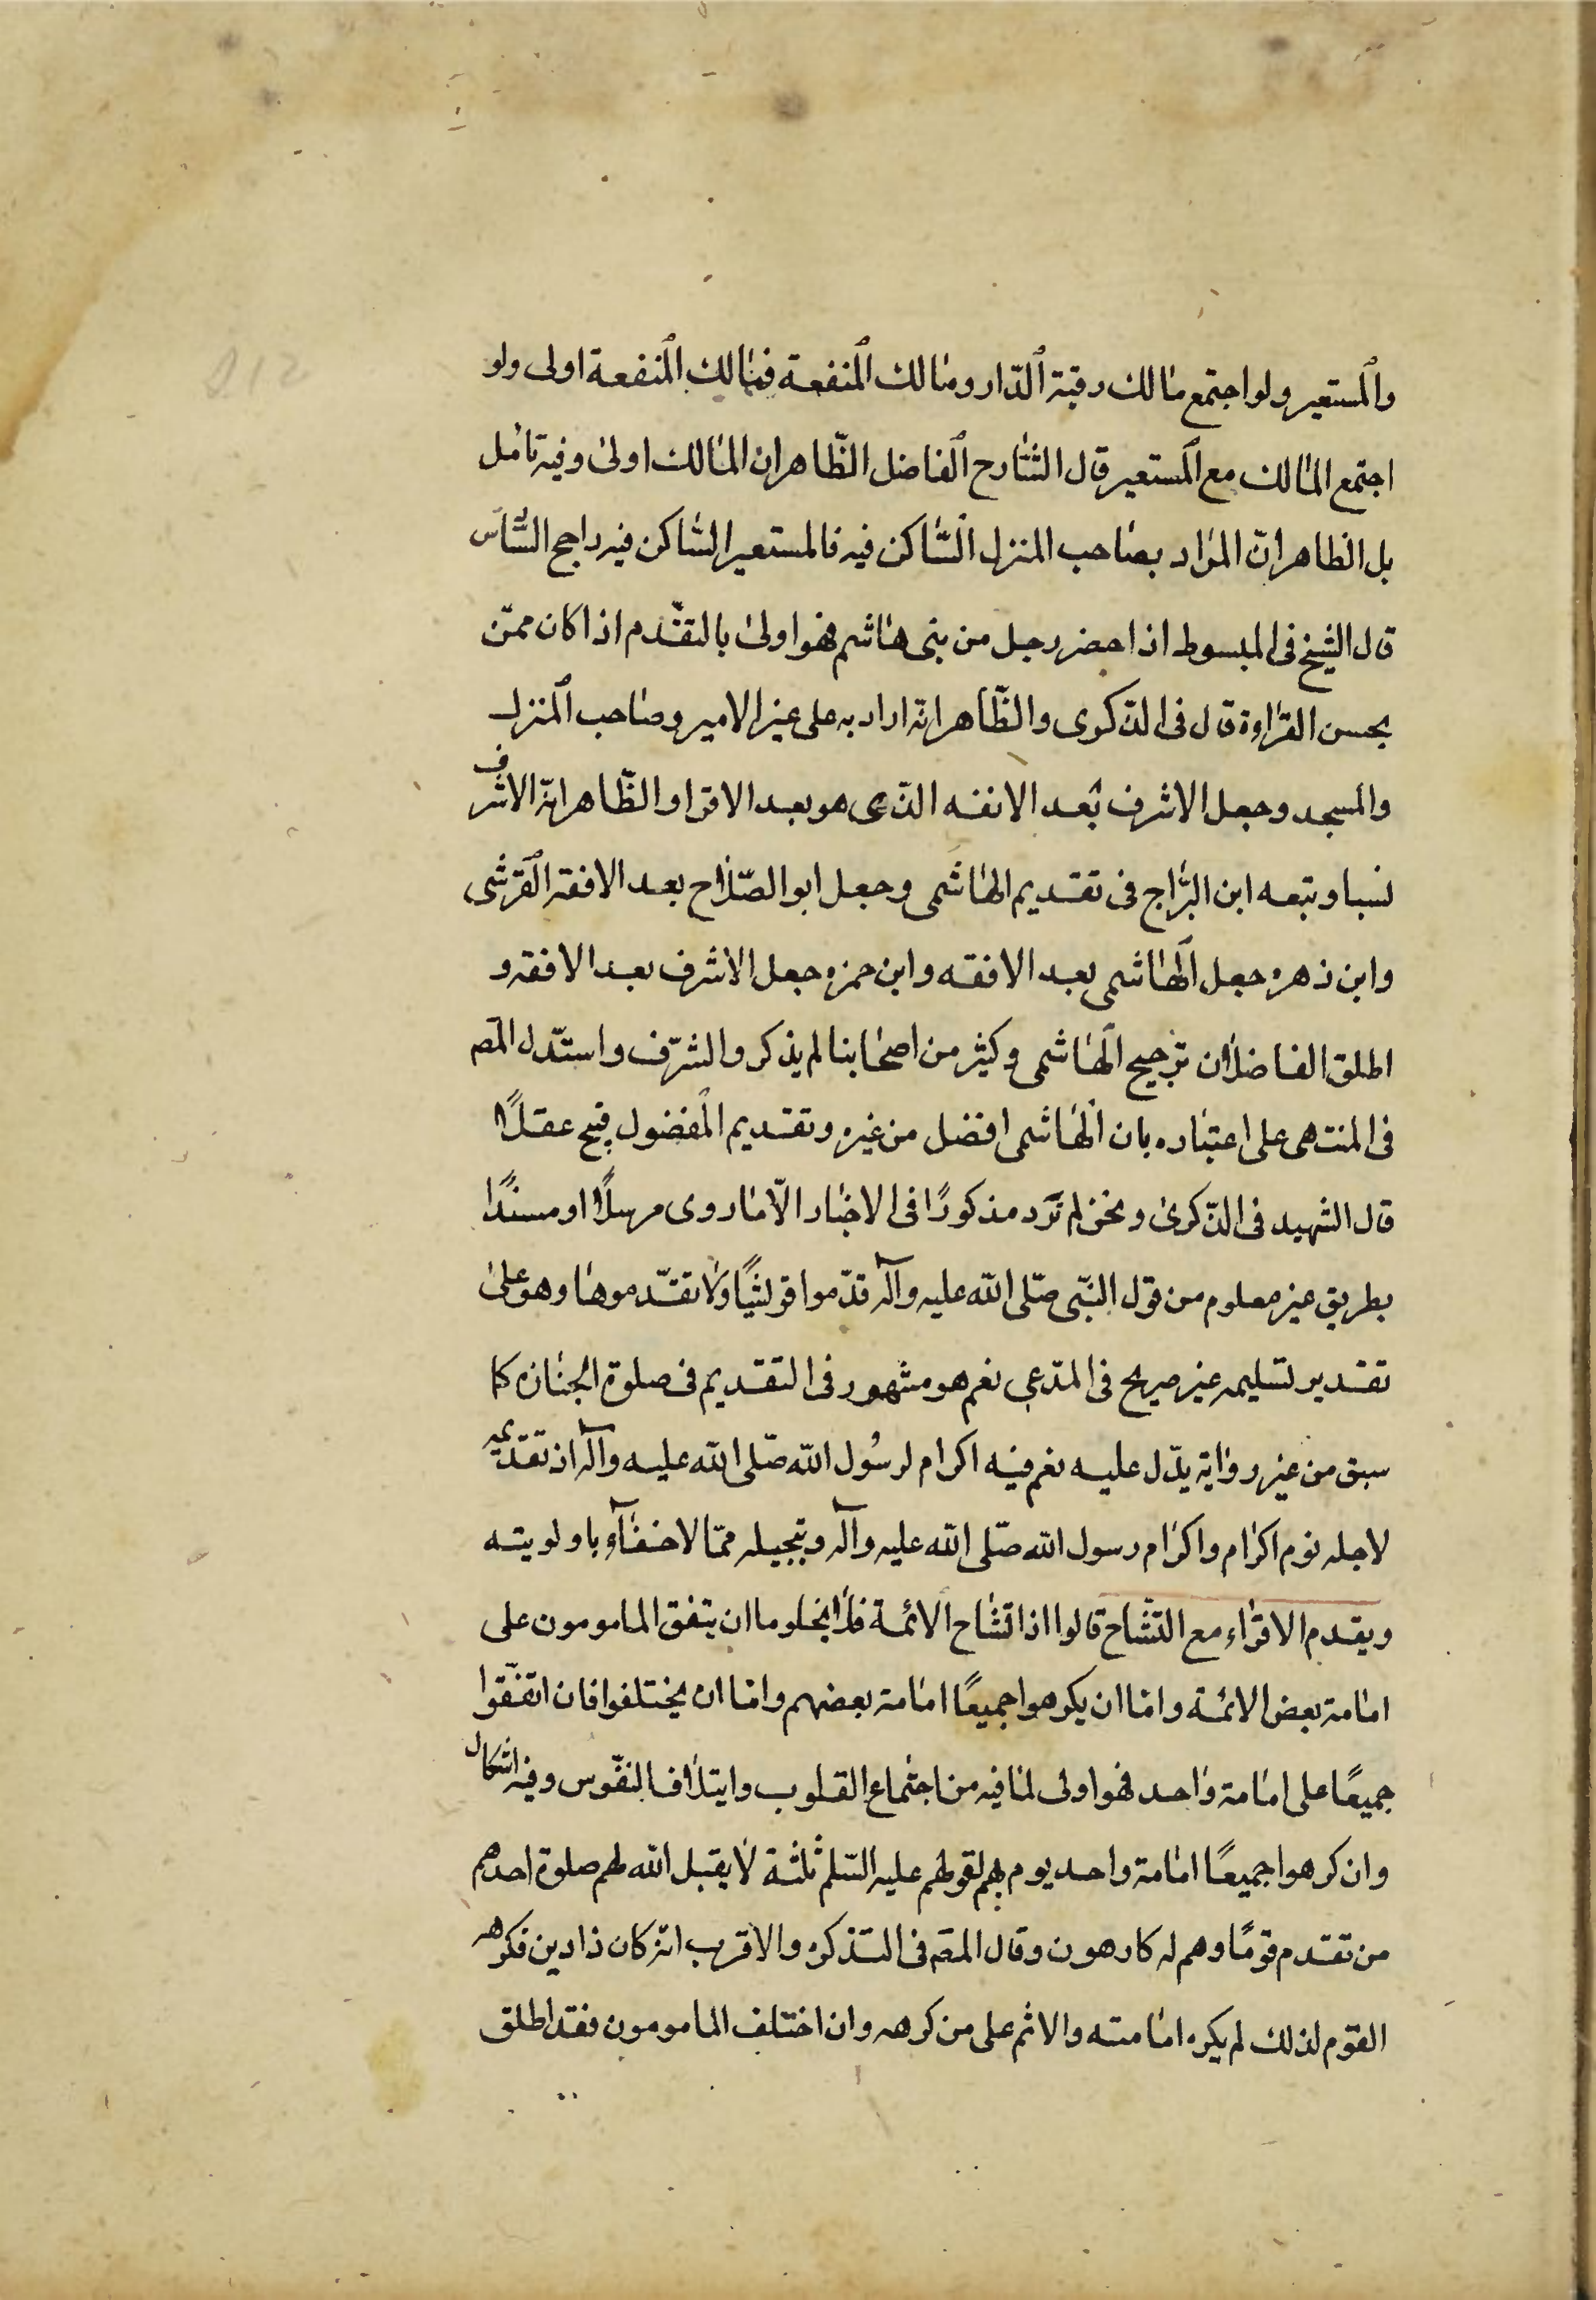 والمستعير ولو اجتمع مالك رقبة الدار ومالك المنفعة فمالك المنفعة اولى ولو
اجتمع المالك مع المستعير قال الشارح الفاضل الظّاهر ان المالك اولى وفيه تامل
بل الظاهر انّ المراد بصاحب المنزل السّاكن فيه فالمستعير السّاكن فيه راجح السّادس
قال الشيخ فى المبسوط اذا حضر رجل من بنى هاشم فهو اولى بالتقدم اذا كان ممّن
يحسن القراءة قال فى الذكرى والظّاهر انّه اراد به على غير الامير وصاحب المنزل
والمسجد وجعل الاشرف بعد الافقه الذى هو بعد الاقرا والظّاهر انّه الاشرف
نسبا وتبعه ابن البرّاج فى تقديم الهاشمى وجعل ابو الصّلاح بعد الافقه القرشى
وابن زهره جعل الهاشمى بعد الافقه وابن حمزه جعل الاشرف بعد الافقه و
اطلق الفاضلان ترجيح الهاشمى وكثير من اصحابنا لم يذكروا الشرف واستدل المصه
فى المنتهى على اعتباره بان الهاشمى افضل من غيره وتقديم المفضول قبيح عقلًا
قال الشهيد فى الذّكرى ونحن لم نره مذكورًا فى الاخبار الّا ما روى مرسلًا او مسندًا
بطريق غير معلوم من قول النبّى صلّى الله عليه وآله قدّموا قرشيًا ولا تقدّموها وهو على
تقدير تسليمه غير صريح فى المدّعى نعم هو مشهور فى التقديم فى صلوة الجنازه كما
سبق من غير رواية يدل عليه نعم فيه اكرام لرسول الله صلّى الله عليه وآله اذ تقديمه
لاجله نوم اكرام واكرام رسول الله صلّى الله عليه وآله وتبجيله ممّا لا خفآء باولويته
ويقدم الاقراء مع التشّاح قالوا اذا تشاح الائمة فلا يخلوما ان يتفق المامومون على
امامة بعض الائمة واما ان يكرهوا جميعًا امامة بعضهم واما ان يختلفوا فان اتفقوا
جميعًا على امامة واحد فهو اولى لما فيه من اجتماع القلوب وايتلاف النفوس وفيه اشكال
وان كرهوا جميعًا امامة واحد يوم بهم لقولهم عليه السّلم ثلثة لا يقبل الله لهم صلوة احدهم
من تقدم قومًا وهم له كارهون وقال المصه فى التذكره والاقرب انّه كان ذا دين فكرهه
القوم لذلك لم يكره امامته والاثم على من كرهه وان اختلف المامومون فقد اطلق